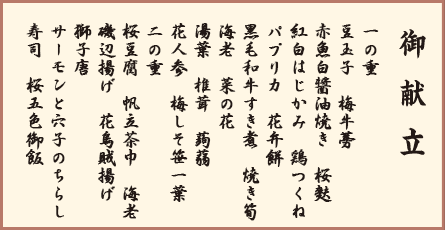 御献立
一の重
豆玉子　梅牛蒡
赤魚白醤油焼き　桜麩
紅白はじかみ　鶏つくね
パプリカ　花弁餅
黒毛和牛すき煮　焼き筍
海老　菜の花
湯葉　椎茸　蒟蒻
花人参　梅しそ笹一葉
二の重
桜豆腐　帆立茶巾　海老
磯辺揚げ　花烏賊揚げ
獅子唐
サーモンと穴子のちらし
寿司　桜五色御飯